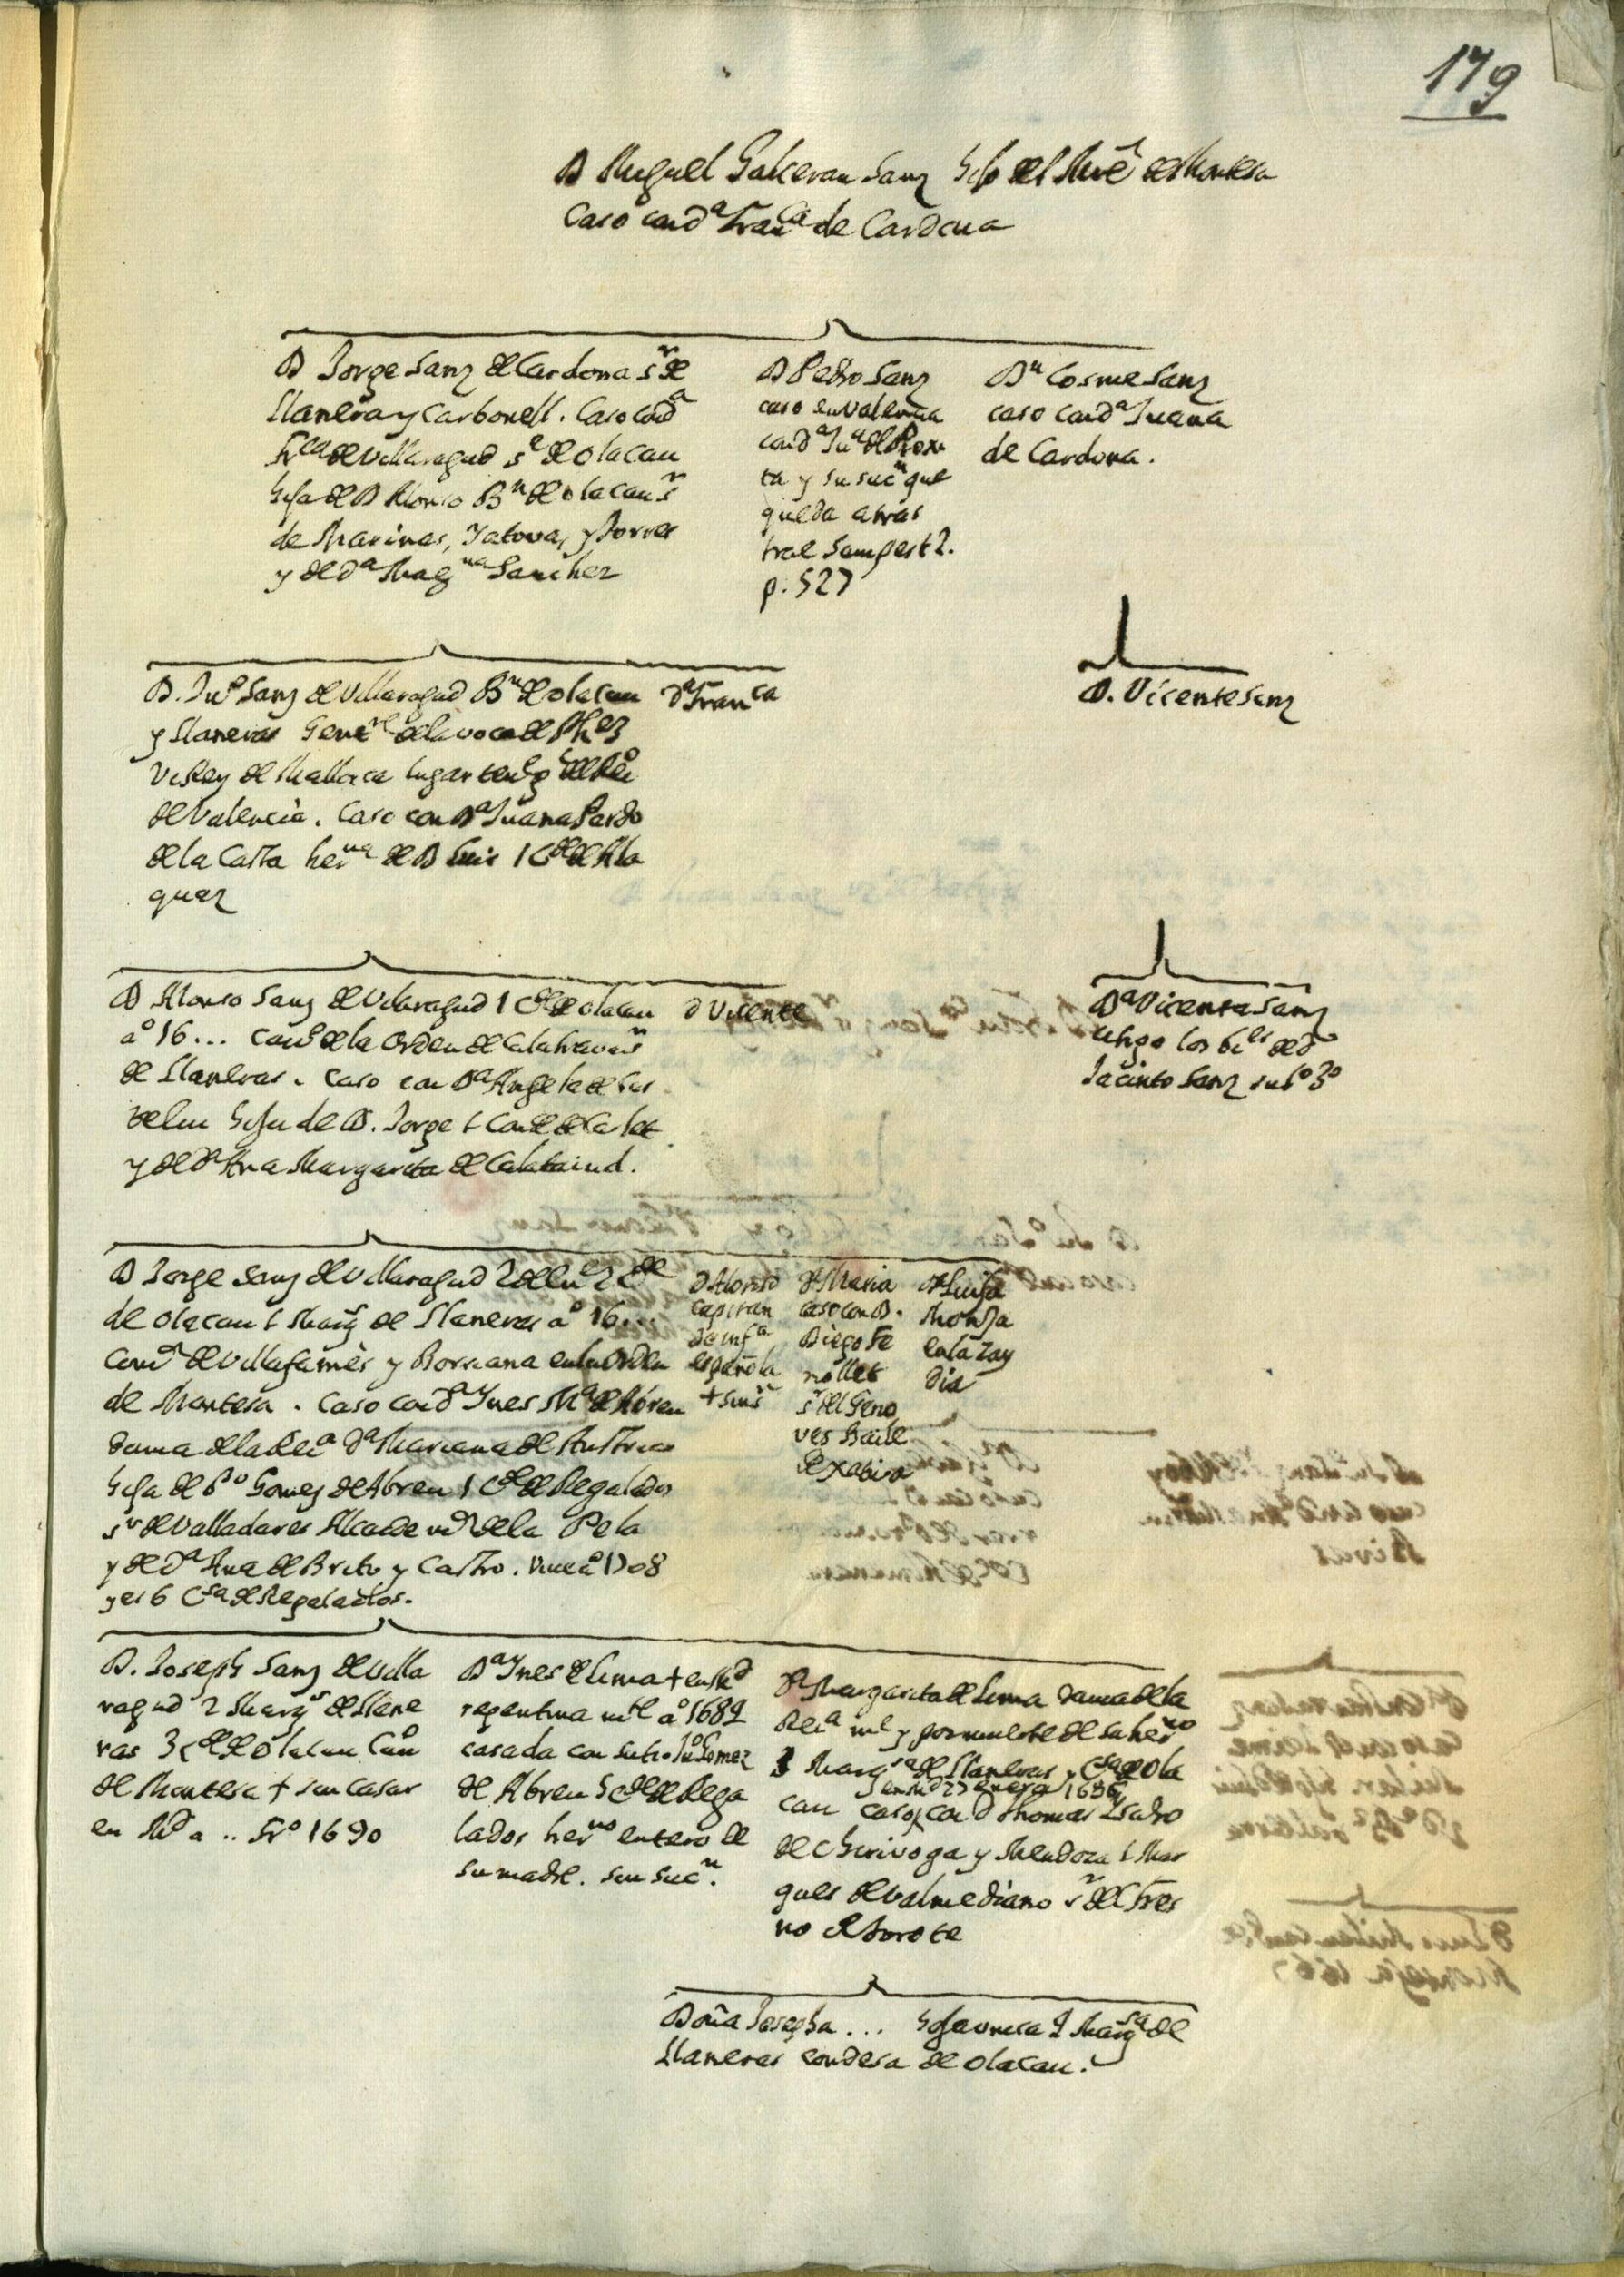 179
D Miguel Galceran Sanz hijo del Mre de Montesa
Caso con da Franca de Cardona
D Jorge Sanz de Cardona sr de
Llanera y Carbonell. Caso con da
Frca de Villaragud sa de Olocau
hija de D Alonso Bn de Olocau sr
de Marines, Yatova, y Torres
y de da Magna Sanchez
D Pedro Sanz
caso en Valencia
con da Jua de
ta y su sucn que
queda atras
trae Samper t 2.
p. 527
Dn Cosme Sanz
caso con da Juana
de Cardona.
D. Juo Sanz de Villaragud Bn de Olocau
y Llaneras Genel de la voca de
Virey de Mallorca lugarten
de Valencia. Caso con Da Juana Pardo
de la Casta herna de D Luis 1 Cde de Ala
quaz
da Franca
D. Vicente Sanz
D Alonso Sanz de Vilaragud 1 Cde de Olocau
ao 16... Cauo de la Orden de Calatrava sr
de Llaneras. Caso con Da Angela de Cas
telvi hija de D. Jorge 1 Conde de Carlet
y de da Ana Margarita de Calataiud.
d Vicente
Da Vicenta Sanz
litigo los de d
Jacinto Sanz su
D Jorge Sanz de Villaragud 2 Cde
de Olocau 1 Marqs de Llaneras ao 16...
Comr de Villafames y Borriana en la Orden
de Montesa. Caso con da Ynes Ma de Abreu
dama de la Reia da Mariana de Austria
hija de Po Gomez de Abreu 1 Cde de Regalados
sr de Valladares Alcaide de la Pela
y de da Ana de Brito y Castro. Vive ao 1708
y es 6 Csa de Regalados.
d Alonso
capitan
de infa
española
+ sin sn
da Maria
caso con D.
Diego Fe
nollet
sr del Geno
ves Baile
de Xativa
da Luisa
Monja
en la Zay
dia
D. Joseph Sanz de Villa
ragud 2 Marqs de Llane
ras 3 Cde de Olocau Cauo
de Montesa + sin casar
en Md a .. Fro 1690
Da Ynes de Lima + en Md
repentina mte ao 1689
casada con su tio Juo Gomez
de Abreu 5 Cde de Rega
lados herno entero de
su madre. sin sucn.
da Margarita de Lima dama de la
Reia me y por muerte de su herno
3 Marqsa de Llaneras y Csa de Olo
en Md 27 enero 1696
cau caso con D Thomas Ysidro
de Chirivoga y Mendoza 1 Mar
ques de Valmediano sr del Fres
no de Torote
Doña Josepha ... hija unica 4 Marqsa de
Llaneras condesa de Olocau.